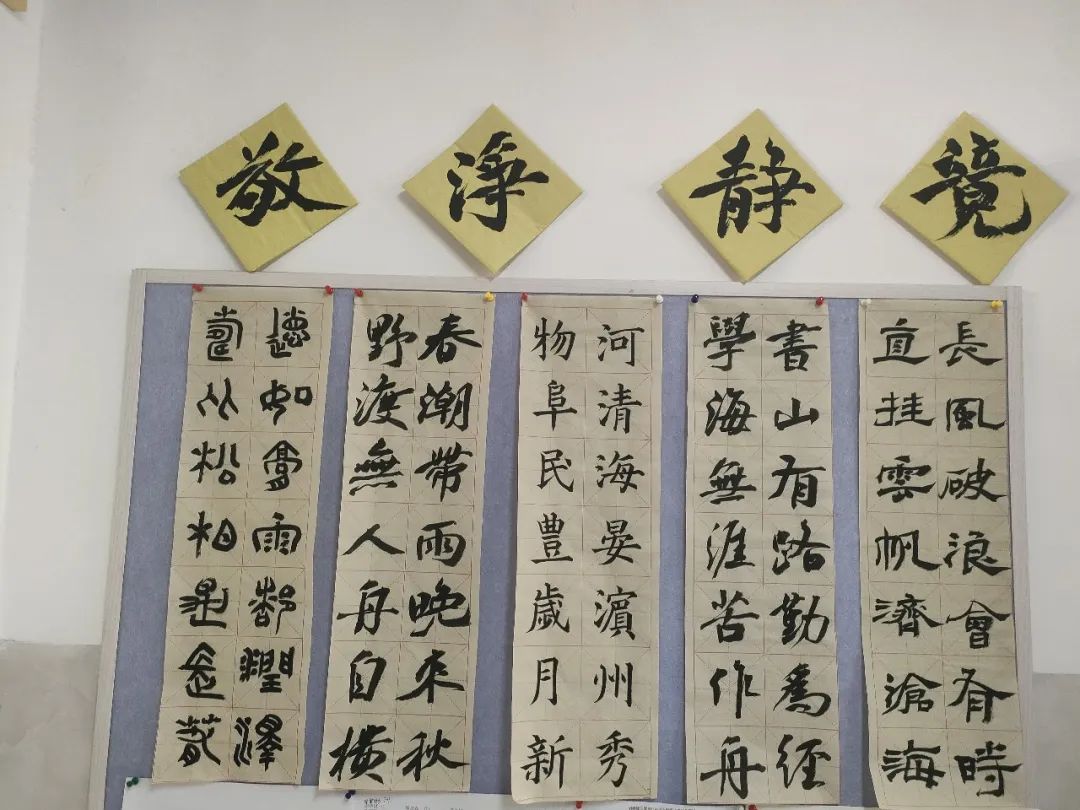 敬淨静竟
長風破浪會有時
直挂雲帆濟滄海
書山有路勤為徑
學海無涯苦作舟
河清海晏濱州秀
物阜民豊歲月新
春潮帶雨晚来秋
野渡無人舟自横
德如膏雨都潤澤
壽比松柏是長